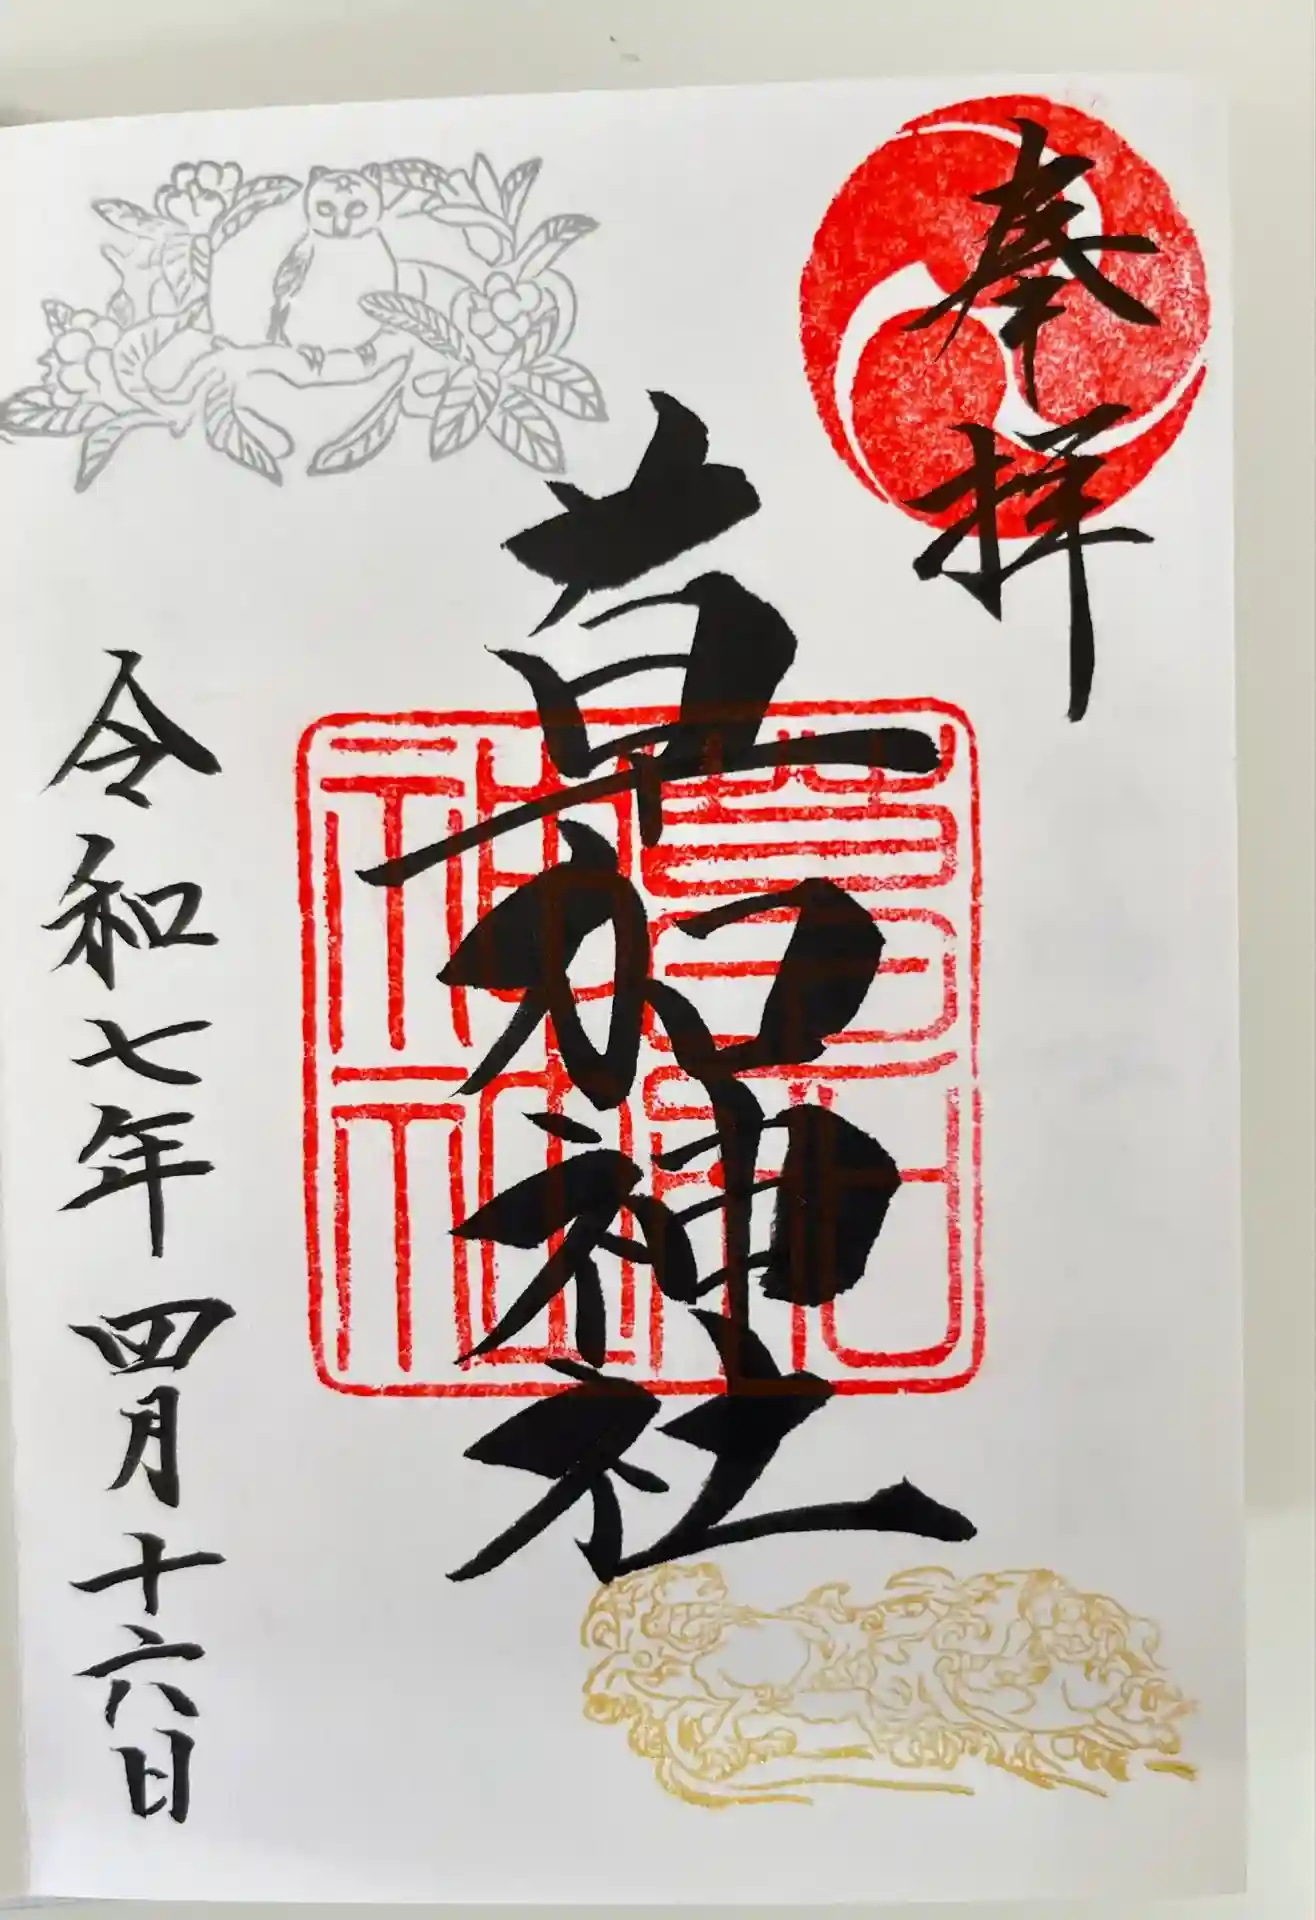 奉拝
草加神社
草加神社
令和七年四月十六日